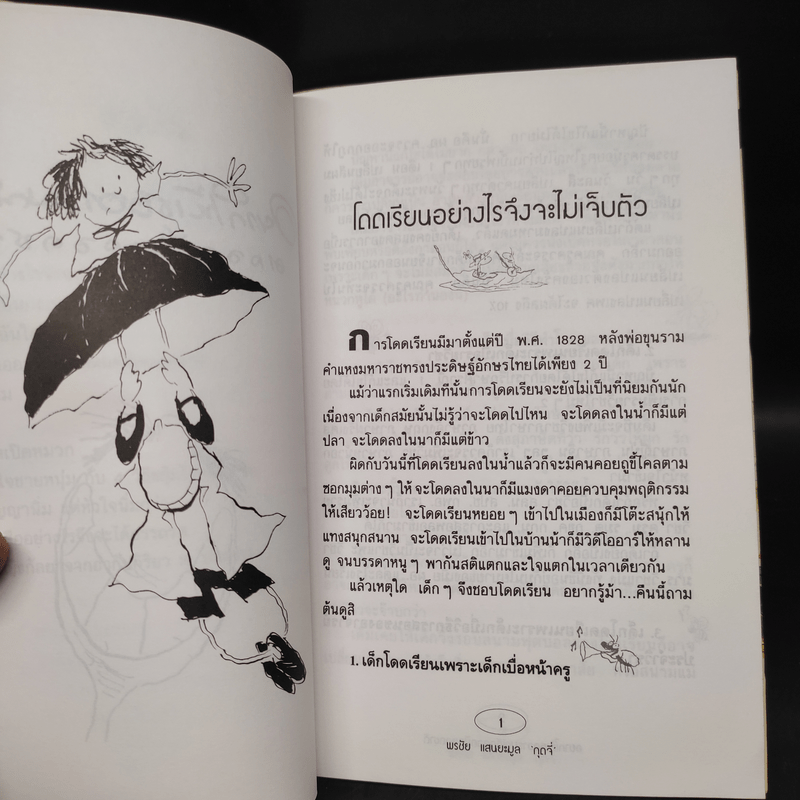 โดดเรียนอย่างไรจึงจะไม่เจ็บตัว
การโดดเรียนมีมาตั้งแต่ปี พ.ศ. 1828 หลังพ่อขุนราม
คำแหงมหาราชทรงประดิษฐ์อักษรไทยได้เพียง 2 ปี
แม้ว่าแรกเริ่มเดิมทีนั้นการโดดเรียนจะยังไม่เป็นที่นิยมกันนัก
เนื่องจากเด็กสมัยนั้นไม่รู้ว่าจะโดดไปไหน จะโดดลงในน้ำก็มีแต่
ปลา จะโดดลงในนาก็มีแต่ข้าว
ผิดกับวันนี้ที่โดดเรียนลงในน้ำแล้วก็จะมีคนคอยถูขี้ไคลตาม
ซอกมุมต่างๆ ให้ จะโดดลงในนาก็มีแมงดาคอยควบคุมพฤติกรรม
ให้เสียวว้อย! จะโดดเรียนหยอยๆ เข้าไปในเมืองก็มีโต๊ะสนุ้กให้
แทงสนุกสนาน จะโดดเรียนเข้าไปในบ้านน้าก็มีวิดีโออาร์ให้หลาน
ดู จนบรรดาหนูๆ พากันสติแตกและใจแตกในเวลาเดียวกัน
แล้วเหตุใด เด็กๆ จึงชอบโดดเรียน อยากรู้ม้า...คืนนี้ถาม
ต้นดูสิ
1. เด็กโดดเรียนเพราะเด็กเบื่อหน้าครู
1
พรชัย แสนยะมูล 'กุดจี่'